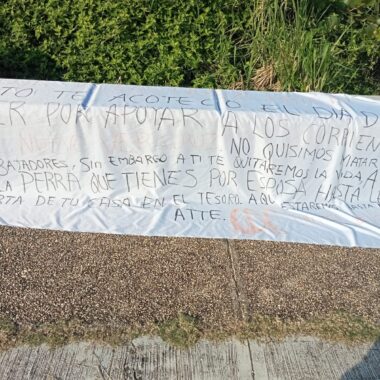 TO TE ACOTECIO EL DIA D
ER POR APOYAR A LOS CORRIEN
NO QUISIMOS MATAR
BAJADORES, SIN EMBARGO A TI TE QUITAREMOS LA VIDA A
LA PERRA QUE TIENES POR ESPOSA HASTA
RTA DE TU CASA EN EL TESORO. AQUI ESTAREMOS
ATTE.